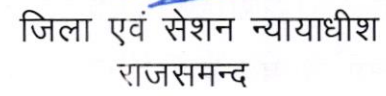 जिला एवं सेशन न्यायाधीश
राजसमन्द